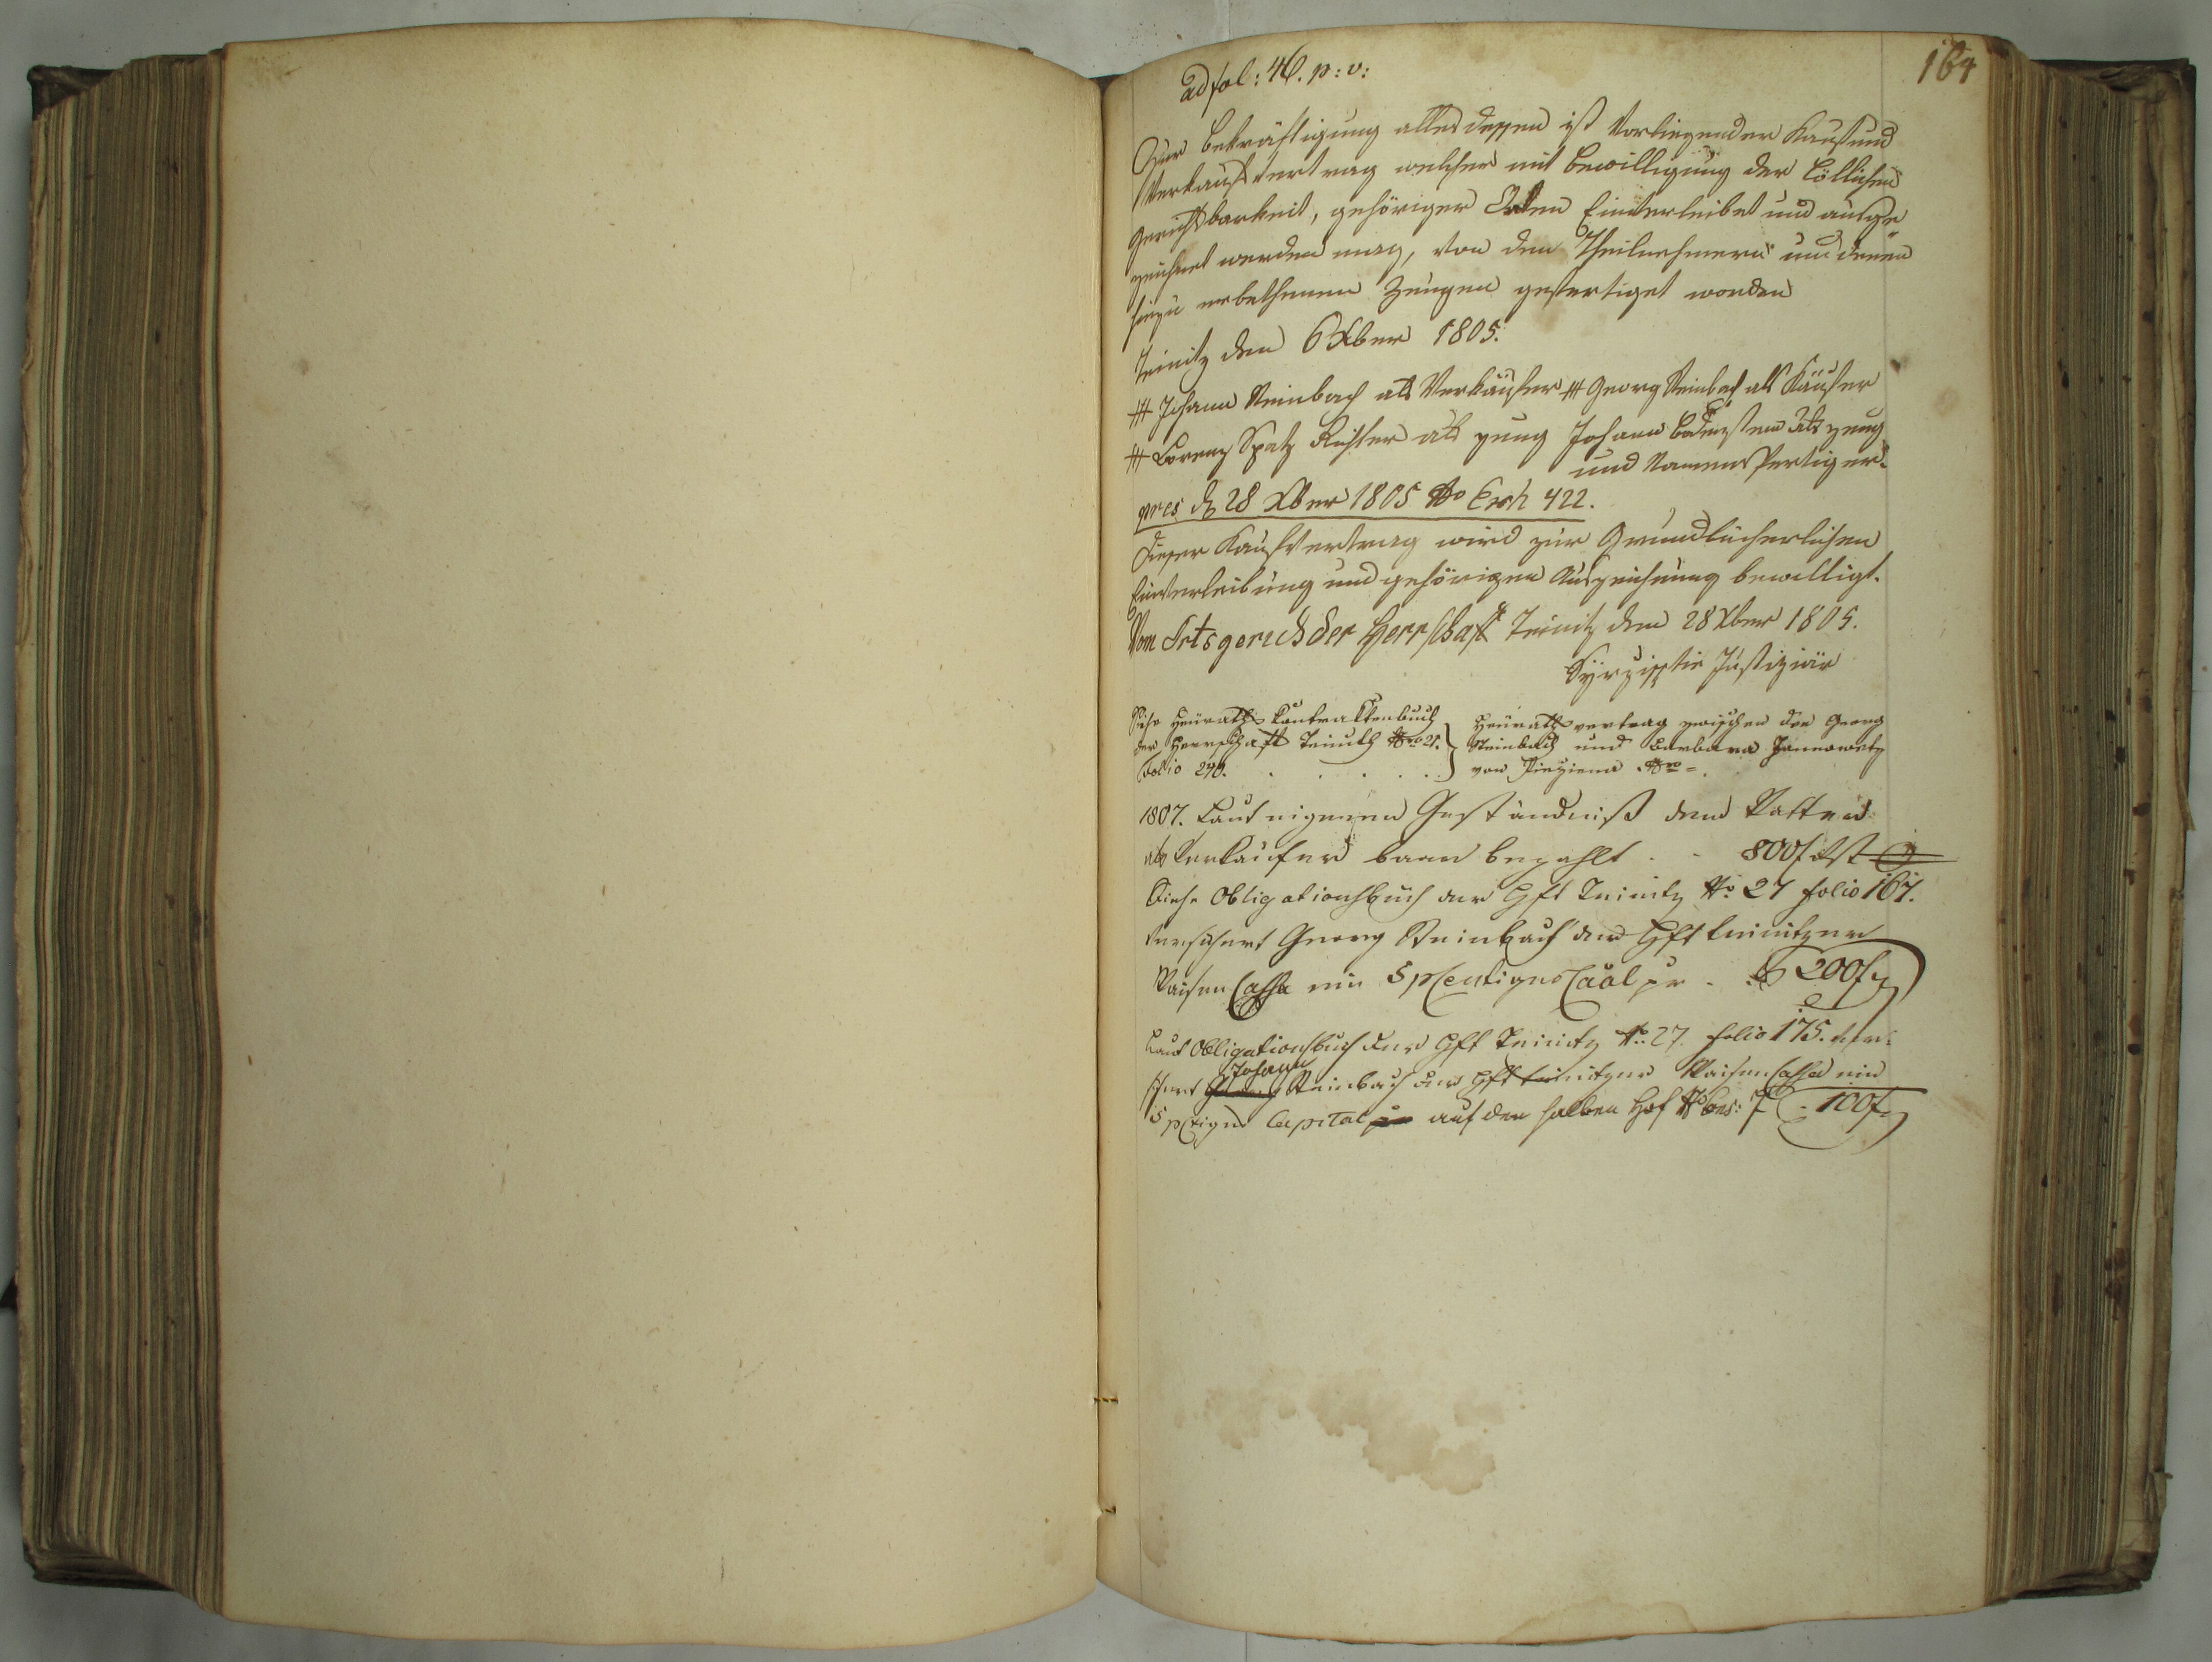 164
ad fol: 46. p: v:
Zur Bekräftigung alles dessen ist Vorliegender Kauf und
Verkaufvertrag welcher mit Bewilligung der Löblichen
Gerichtsbarkeit, gehöriger Orten Einverleibet und ausge
zeichnet werden mag, von den Theilnehmern und denen
hiezu erbethenen Zeugen gefertiget worden
Teinitz den 6 Xber 1805.
╫ Johann Steinbach als Verkäufer ╫ Georg Steinbach als Käufer
╫ Lorenz Spatz Richter als zeug Johann als zeug
und Namens Fertiger.
pres d 28 Xber 1805 No Exh 422.
Dieser Kaufvertrag wird zur Grundbücherlichen
Einverleibung und gehörigen Auszeichnung bewilligt.
Vom Ortsgericht der Herrschaft Teinitz den 28 Xber 1805.
Justiziär
Siehe Heuraths Contraktenbuch
der Herrschaft Teinitz Nro 21.
Folio 240. . . . . .
Heurathsvertrag zwischen den Georg
Steinbach und Barbara
von Nro =.
1807. Laut eigenen Geständniß dem Vatter
als Verkaufer baar bezahlt . - 800f
Siehe Obligationsbuch der Hft Teinitz No 27 folio 167.
versichert Georg Steinbach der Hft Teinitzer
Waisen Cassa ein 5 pCentiges Caal pr . 200f
Laut Obligationsbuch der Hft Teinitz No 27. folio 175. ver=
Johann
sichert Georg Steinbach der Hft Teinitzer Waisen Cassa ein
5 pCtiges Capital pr auf den halben Hof No bes: 7 - 100f